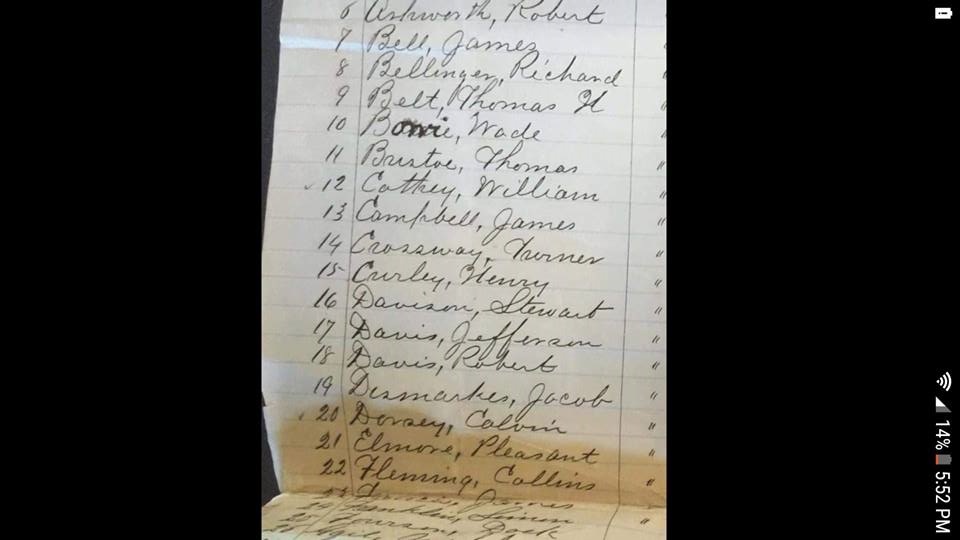 6 Ashworth, Robert
7 Bell, James "
8 Bellinger, Richard "
9 Belt, Thomas H "
10 Bowie, Wade "
11 Bristoe, Thomas "
✓ 12 Cathey, William "
13 Campbell, James "
14 Crossway, Turner "
15 Curley, Henry "
16 Davison, Stewart "
17 Davis, Jefferson "
18 Davis, Robert "
19 Desmarkes, Jacob "
20 Dorsey, Calvin "
21 Elmore, Pleasant "
22 Fleming, Collins "
James
24 Franklin, "
25
14%
5:52 PM